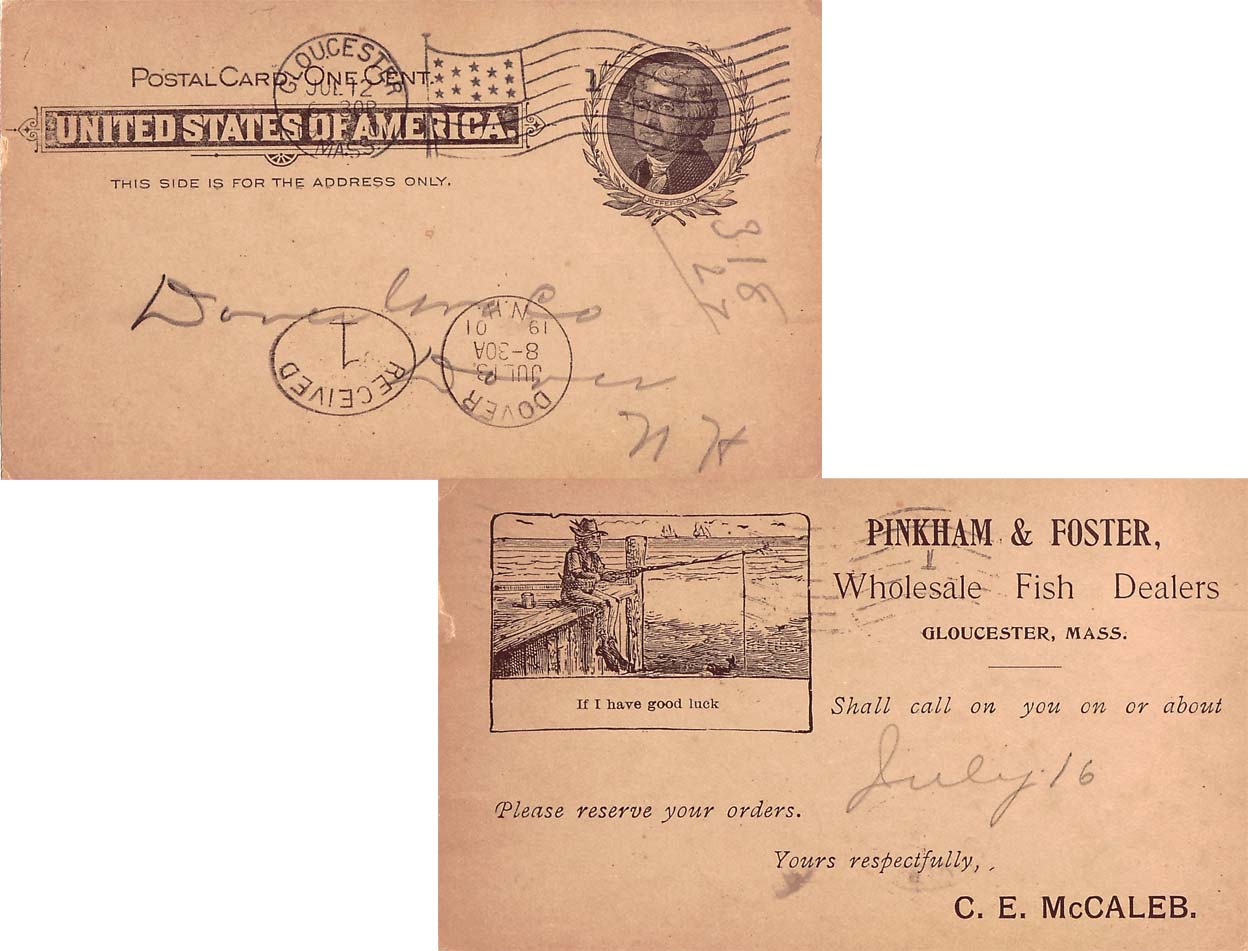 POSTAL CARD-ONE CENT.
UNITED STATES OF AMERICA.
THIS SIDE IS FOR THE ADDRESS ONLY.
GLOUCESTER
JUL 12
6-30P
MASS.
1
JEFFERSON
318
27
Dover Gro Co
Dover
N H
RECEIVED
1
DOVER
JUL 13
8-30A
19 01
N.H.
PINKHAM & FOSTER,
1
Wholesale Fish Dealers
GLOUCESTER, MASS.
If I have good luck
Shall call on you on or about
July 16
Please reserve your orders.
Yours respectfully,
C. E. McCALEB.